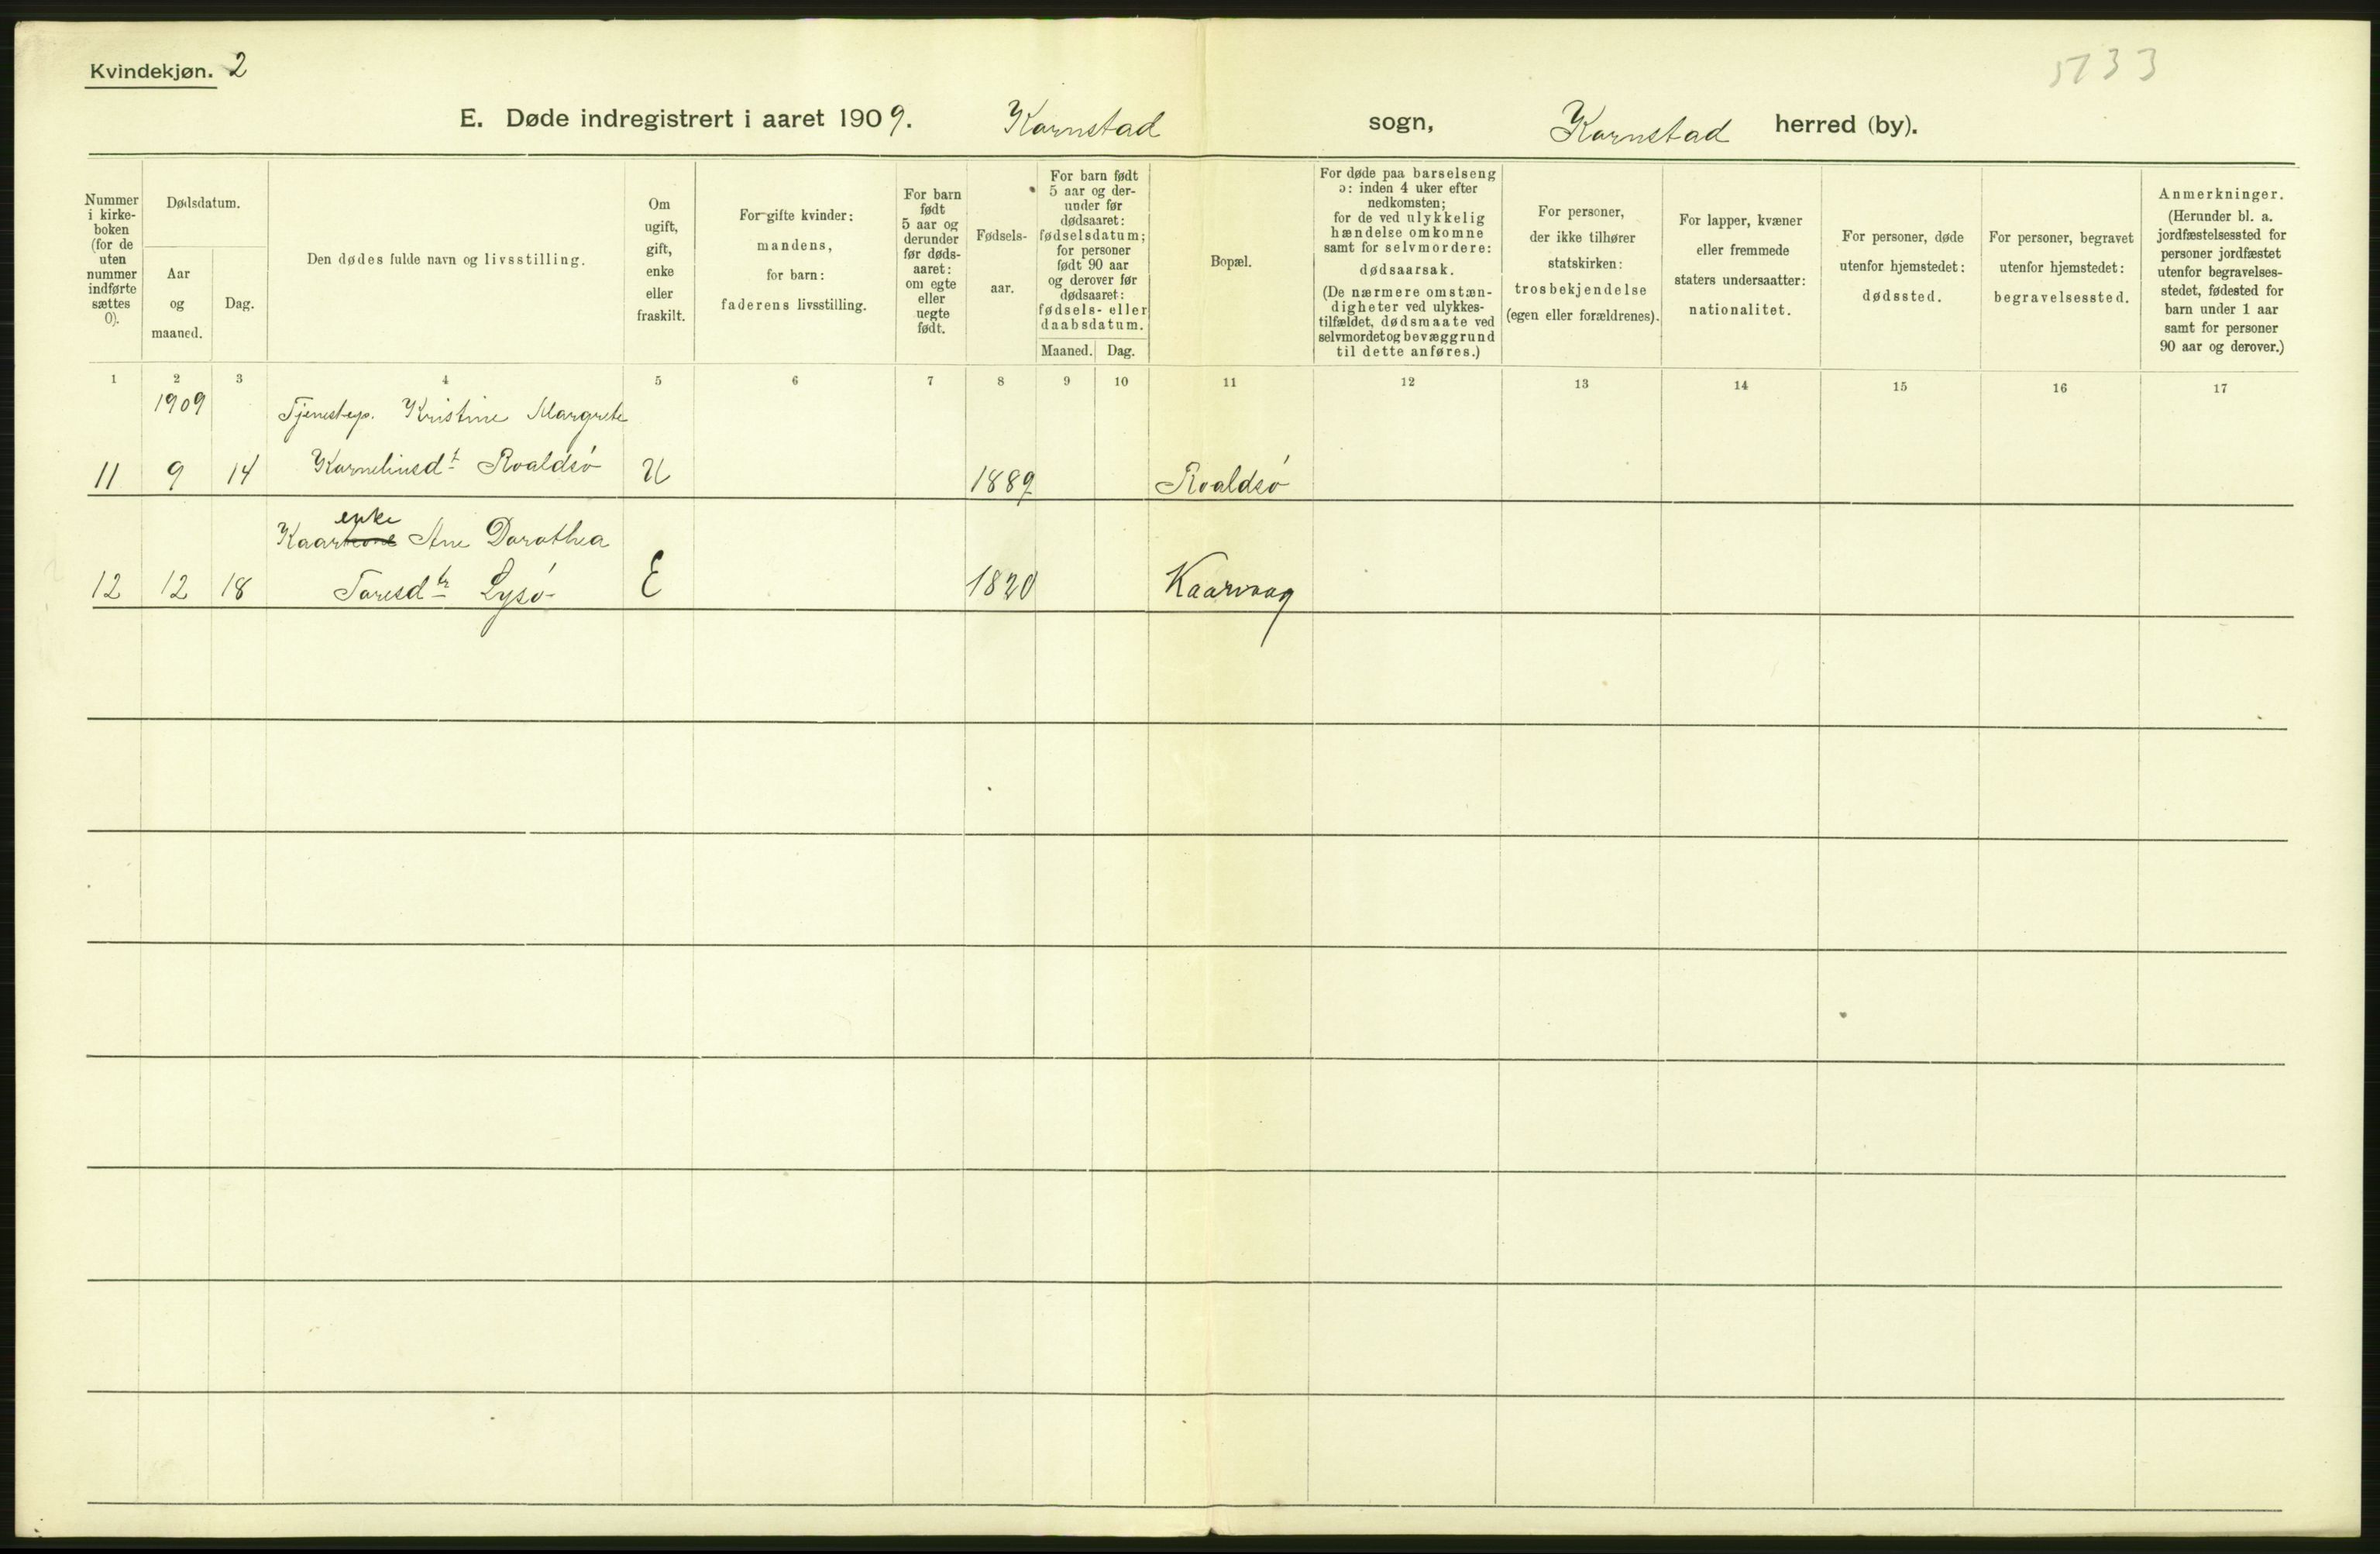 Kvindekjøn. 2
5133
E. Døde indregistrert i aaret 1909. Kornstad sogn, Kornstad herred (by).
Nummer i kirke-boken (for de uten nummer indførte sættes 0).
Dødsdatum.
Aar og maaned.
Dag.
Den dødes fulde navn og livsstilling.
Om ugift, gift, enke eller fraskilt.
For gifte kvinder: mandens, for barn: faderens livsstilling.
For barn født 5 aar og derunder før døds-aaret: om egte eller uegte født.
Fødsels-aar.
For barn født 5 aar og der-under før dødsaaret: fødselsdatum; for personer født 90 aar og derover før dødsaaret: fødsels- eller daabsdatum.
Maaned. Dag.
Bopæl.
For døde paa barselseng ɔ: inden 4 uker efter nedkomsten; for de ved ulykkelig hændelse omkomne samt for selvmordere: dødsaarsak. (De nærmere omstæn-digheter ved ulykkes-tilfældet, dødsmaate ved selvmordet og bevæggrund til dette anføres.)
For personer, der ikke tilhører statskirken: trosbekjendelse (egen eller forældrenes).
For lapper, kvæner eller fremmede staters undersaatter: nationalitet.
For personer, døde utenfor hjemstedet: dødssted.
For personer, begravet utenfor hjemstedet: begravelsessted.
Anmerkninger. (Herunder bl. a. jordfæstelsessted for personer jordfæstet utenfor begravelses-stedet, fødested for barn under 1 aar samt for personer 90 aar og derover.)
1 2 3 4 5 6 7 8 9 10 11 12 13 14 15 16 17
1909 Tjenestep. Kristine Margrete
11 9 14 Kornelinsdt Roaldsø U 1889 Roaldsø
enke
Kaarkone Ane Dorothea
12 12 18 Toresdtr Lysø E 1820 Kaarvaag